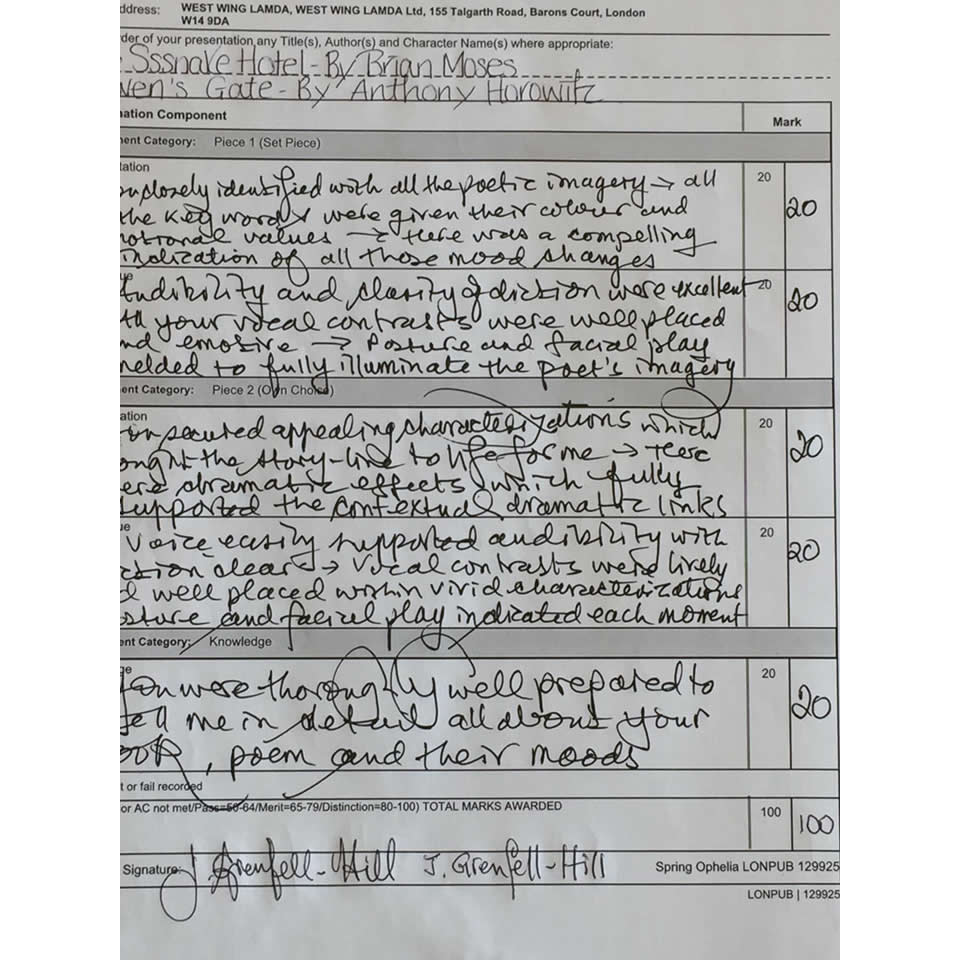 ddress: WEST WING LAMDA, WEST WING LAMDA Ltd, 155 Talgarth Road, Barons Court, London
W14 9DA
der of your presentation any Title(s), Author(s) and Character Name(s) where appropriate:
Sssnake Hotel - By Brian Moses
ven's Gate - By Anthony Horowitz
nation Component Mark
ent Category: Piece 1 (Set Piece)
tation 20 20
closely identified with all the poetic imagery → all
the key words were given their colour and
otional values → there was a compelling
indication of all those mood changes
ue 20 20
Audibility and clarity of diction were excellent
th your vocal contrasts were well placed
nd emotive → Posture and facial play
melded to fully illuminate the poet's imagery
ent Category: Piece 2 (Own Choice)
ation 20 20
ou secured appealing characterizations which
ought the story-line to life for me → there
ere dramatic effects which fully
supported the contextual dramatic links
ue 20 20
Voice easily supported audibility with
ction clear → Vocal contrasts were lively
d well placed within vivid characterizations
sture and facial play indicated each moment
ent Category: Knowledge
ge 20 20
You were thoroughly well prepared to
tell me in detail all about your
ook, poem and their moods
t or fail recorded
or AC not met/Pass=50-64/Merit=65-79/Distinction=80-100) TOTAL MARKS AWARDED 100 100
Signature: J Grenfell-Hill J. Grenfell-Hill Spring Ophelia LONPUB 129925
LONPUB | 129925